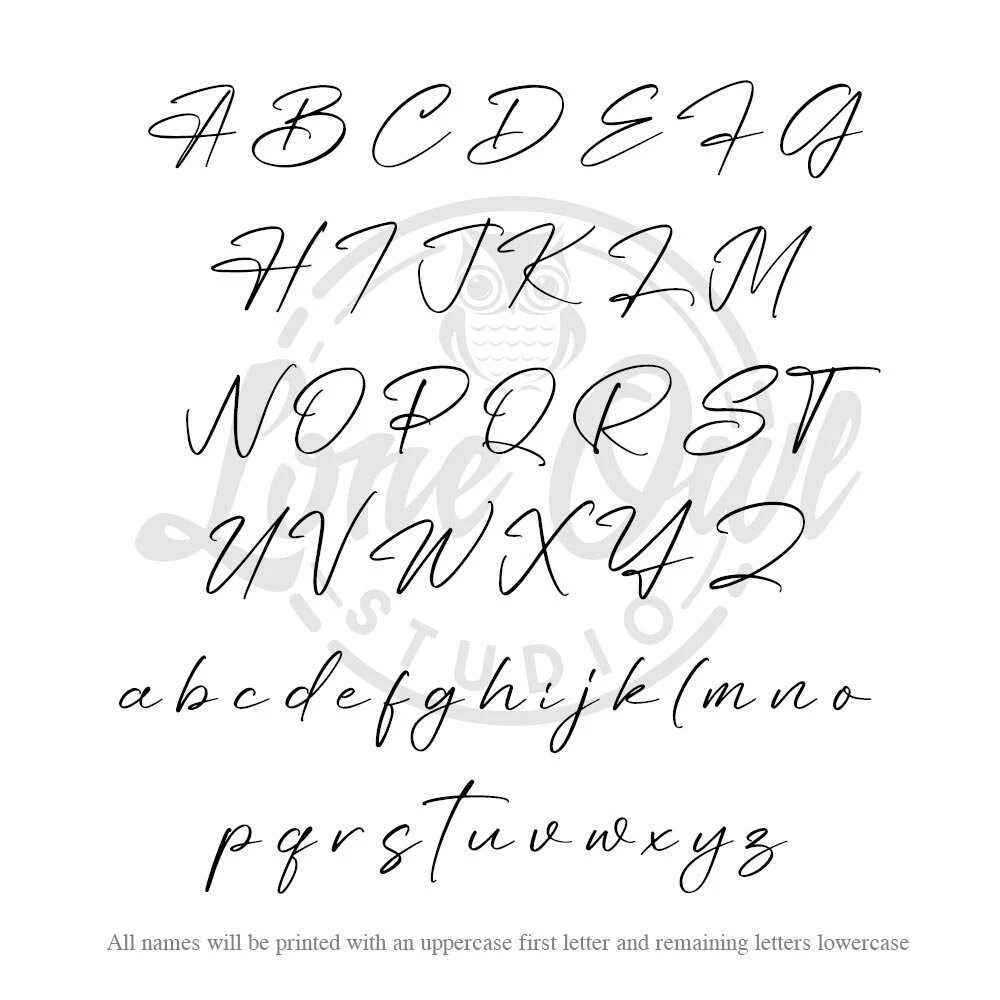 A B C D E F G
H I J K L M
N O P Q R S T
U V W X Y Z
a b c d e f g h i j k l m n o
p q r s t u v w x y z
Lone Owl
STUDIO
All names will be printed with an uppercase first letter and remaining letters lowercase